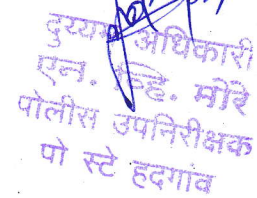 दुय्यम अधिकारी
एन. व्हि. मोरे
पोलीस उपनिरीक्षक
पो स्टे हदगाव